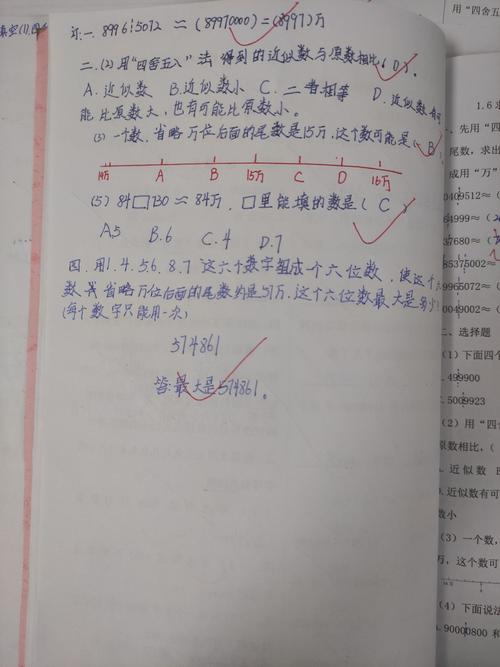 近.一. 89965072 ≈ (89970000) = (8997)万
二.(2) 用"四舍五入"法 得到的近似数与原数相比( D )。
A. 近似数 B. 近似数小 C. 二者相等 D. 近似数有可
能比原数大,也有可能比原数小。
(3) 一个数,省略万位后面的尾数是15万,这个数可能是( B )
14万 A B 15万 C D 16万
(5) 84□730 ≈ 84万,□里能填的数是( C )
A5 B.6 C.4 D.7
四.用1.4.5.6.8.7 这六个数字组成一个六位数,使这个
数 省略万位后面的尾数约是57万.这个六位数最大是多少?
(每个数字只能用一次)
574861
答:最大是574861。
用"四舍五
1.6 
先用"四
尾数,求出
成用"万"
0409512≈(
64999≈(
37680≈(
85375002≈(
9965072≈(
0049002≈(
二、选择题
(1)下面四个
.499900
.5009923
(2)用"四舍
似数相比,(
近似数
.近似数有可
数小
(3)一个数,
万,这个数可
(4)下面说法
.90000800 和